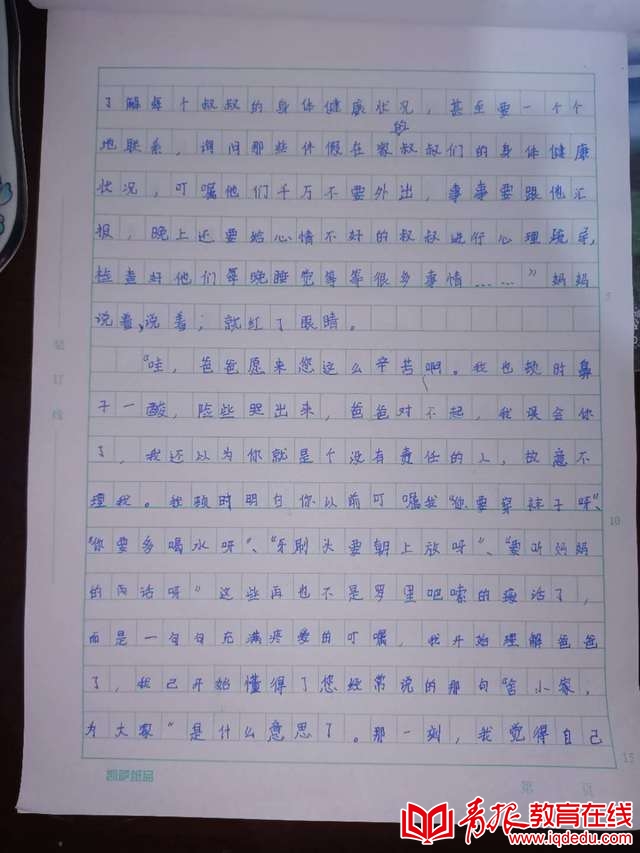 了解每个叔叔的身体健康状况，甚至要一个个
地联系，询问那些休假在家的叔叔们的身体健康
状况，叮嘱他们千万不要外出，事事要跟他汇
报，晚上还要给心情不好的叔叔进行心理疏导，
检查好他们每晚睡觉等等很多事情……”妈妈
说着、说着；就红了眼睛。
“哇，爸爸愿来您这么辛苦啊。我也顿时鼻
子一酸，险些哭出来，爸爸对不起，我误会你
了，我还以为你就是个没有责任的人，故意不
理我。我顿时明白你以前叮嘱我“你要穿袜子呀”、
“你要多喝水呀”、“牙刷头要朝上放呀”、“要听妈妈
的话呀”这些再也不是罗里吧嗦的废话了，
而是一句句充满疼爱的叮嘱，我开始理解爸爸
了，我已开始懂得了您经常说的那句“舍小家，
为大家”是什么意思了。那一刻，我觉得自己
订
线
5
10
15
凯萨纸品
第 页
青报教育在线
www.iqdedu.com